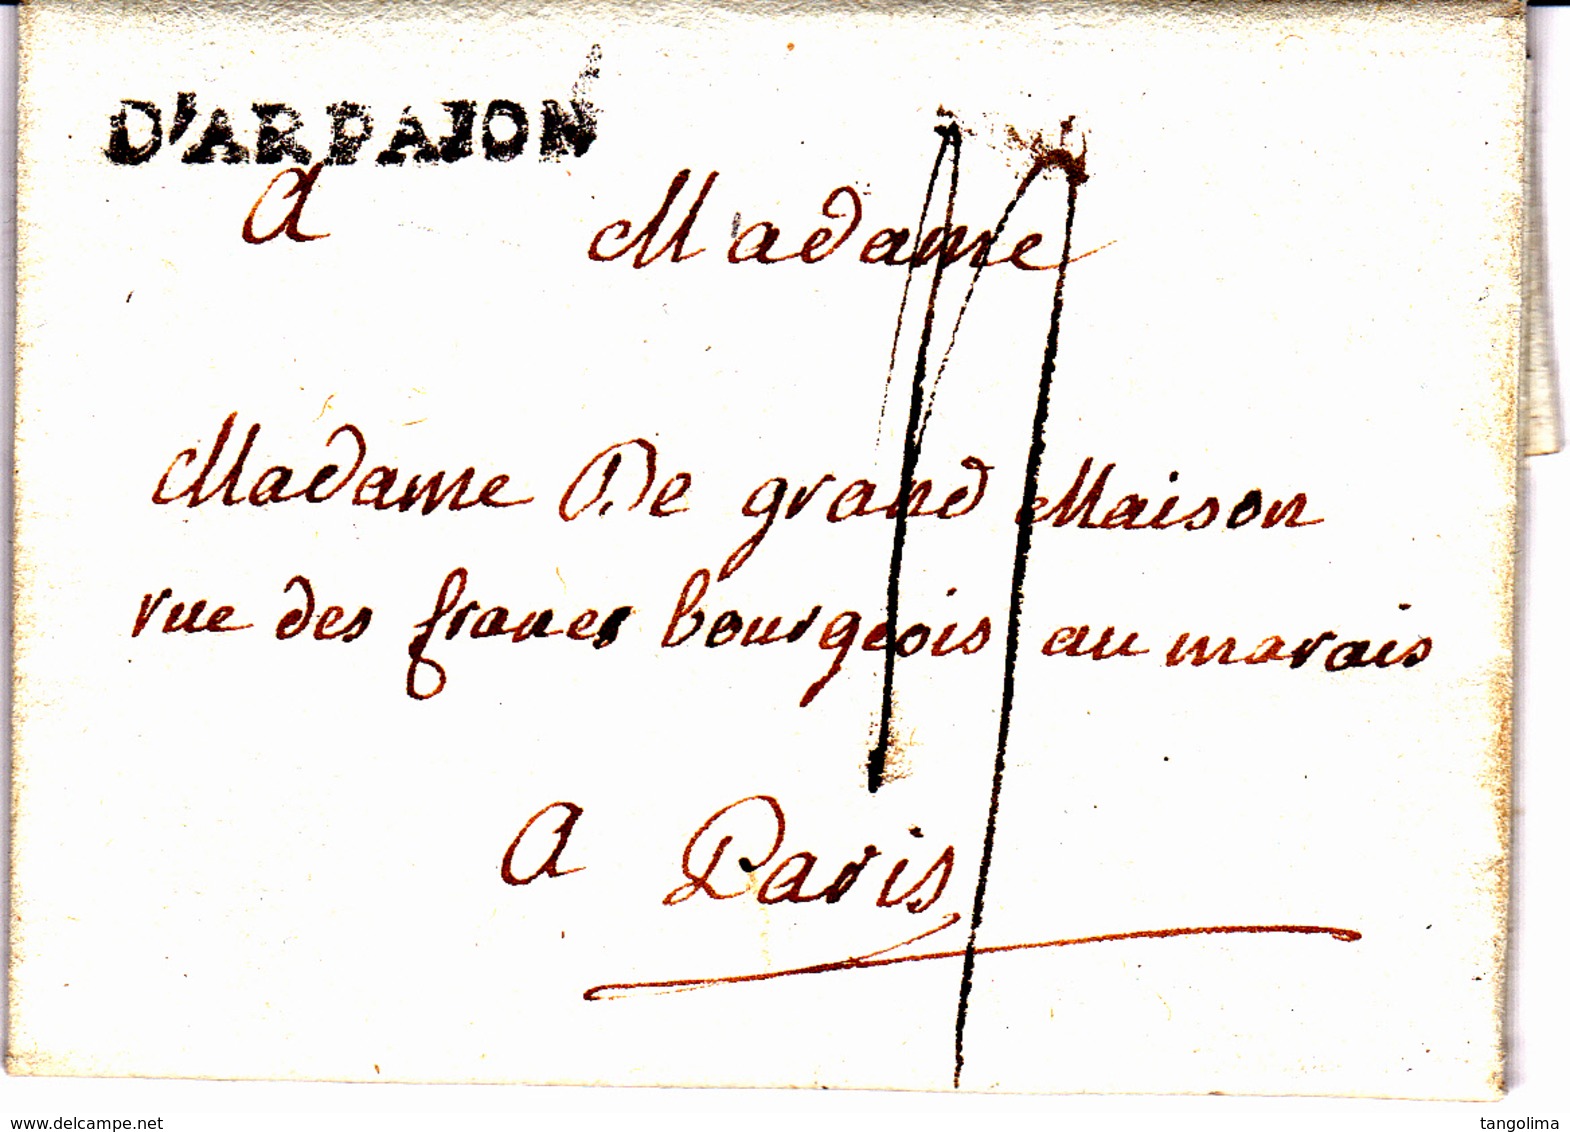 D'ARPAJON
A Madame
Madame De grand Maison
rue des francs bourgeois au marais
A Paris
www.delcampe.net
tangolima